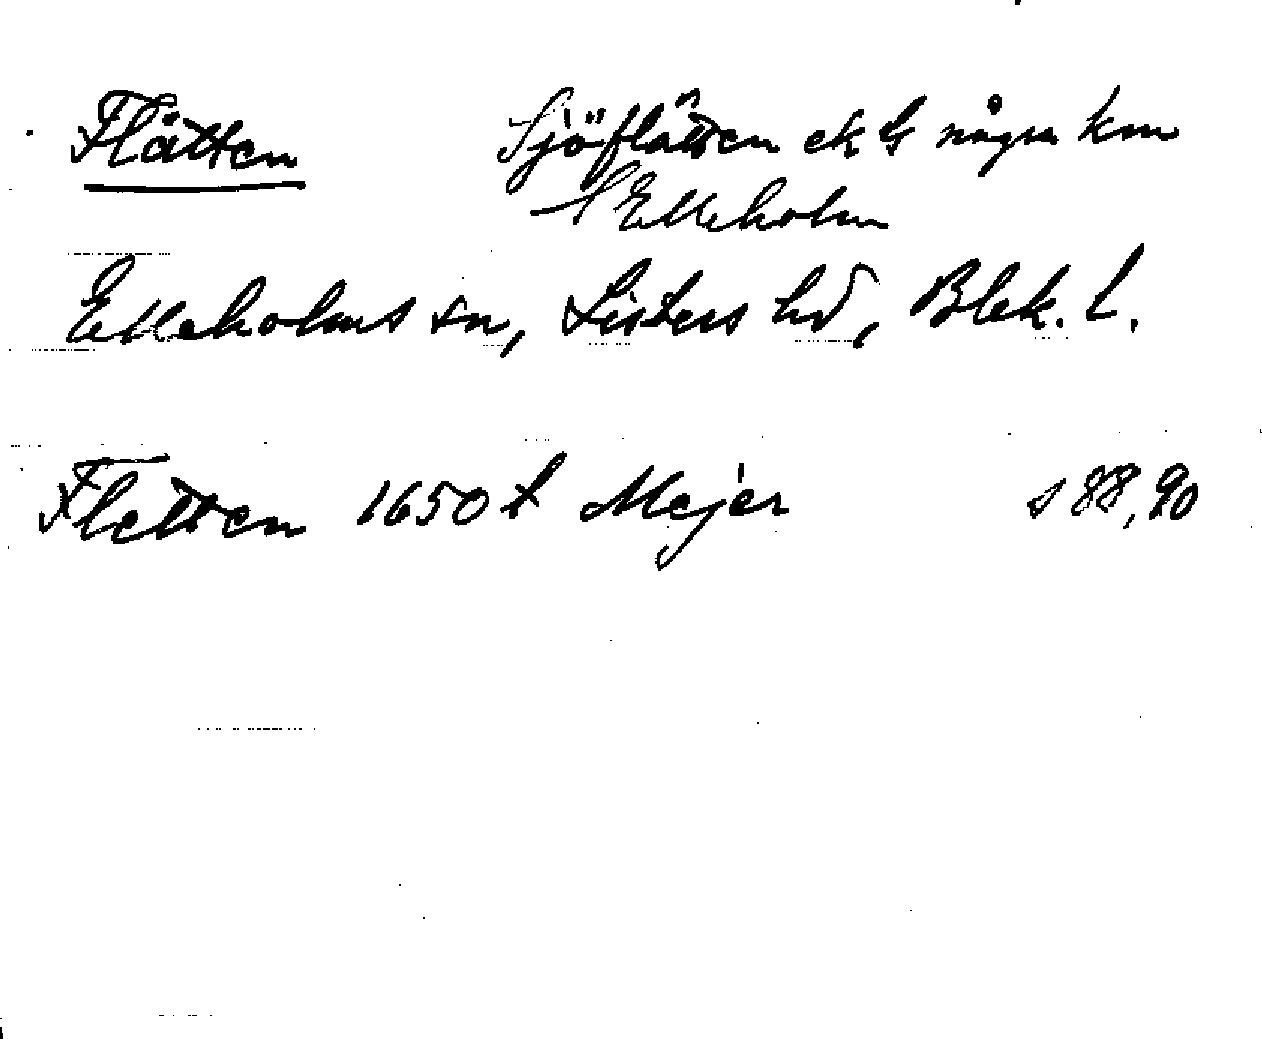 Flätten Sjöflätten ek bl några km
S Elleholm
Elleholms sn, Listers hd, Blek. l.
Fletten 1650 t Mejer s 88, 90